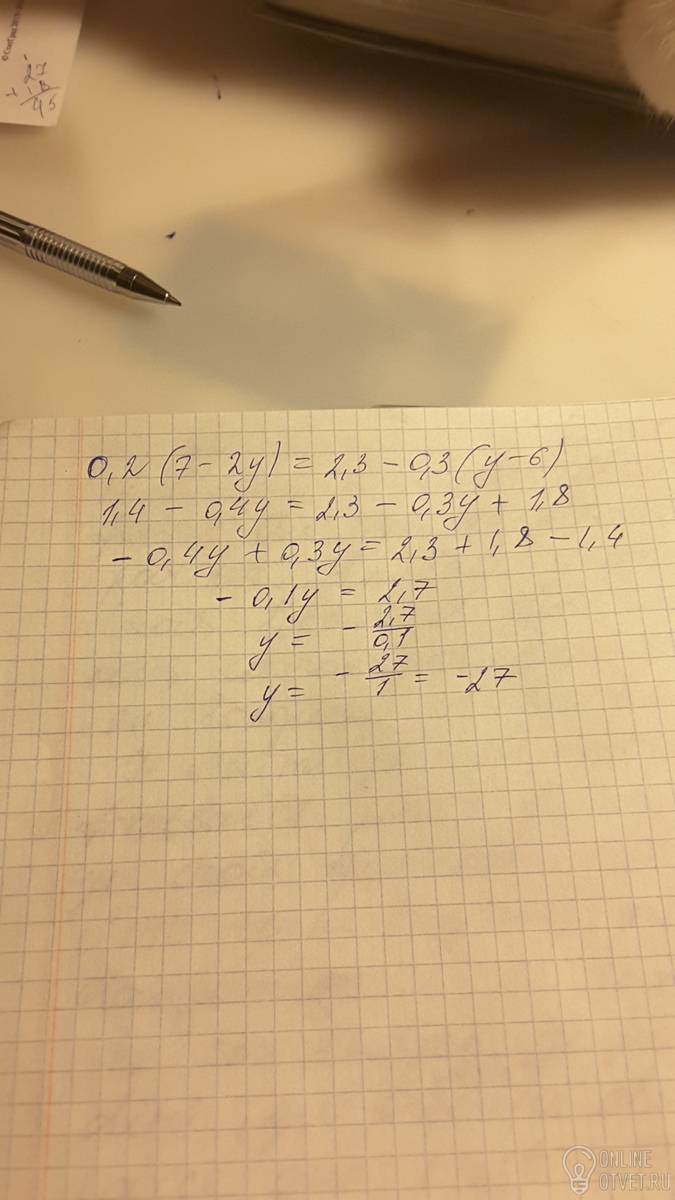 0,2(7-2y) = 2,3-0,3(y-6)
1,4 - 0,4y = 2,3 - 0,3y + 1,8
- 0,4y + 0,3y = 2,3 + 1,8 - 1,4
- 0,1y = 2,7
y = - 2,7/0,1
y = - 27/1 = -27
ONLINE
OTVET.RU